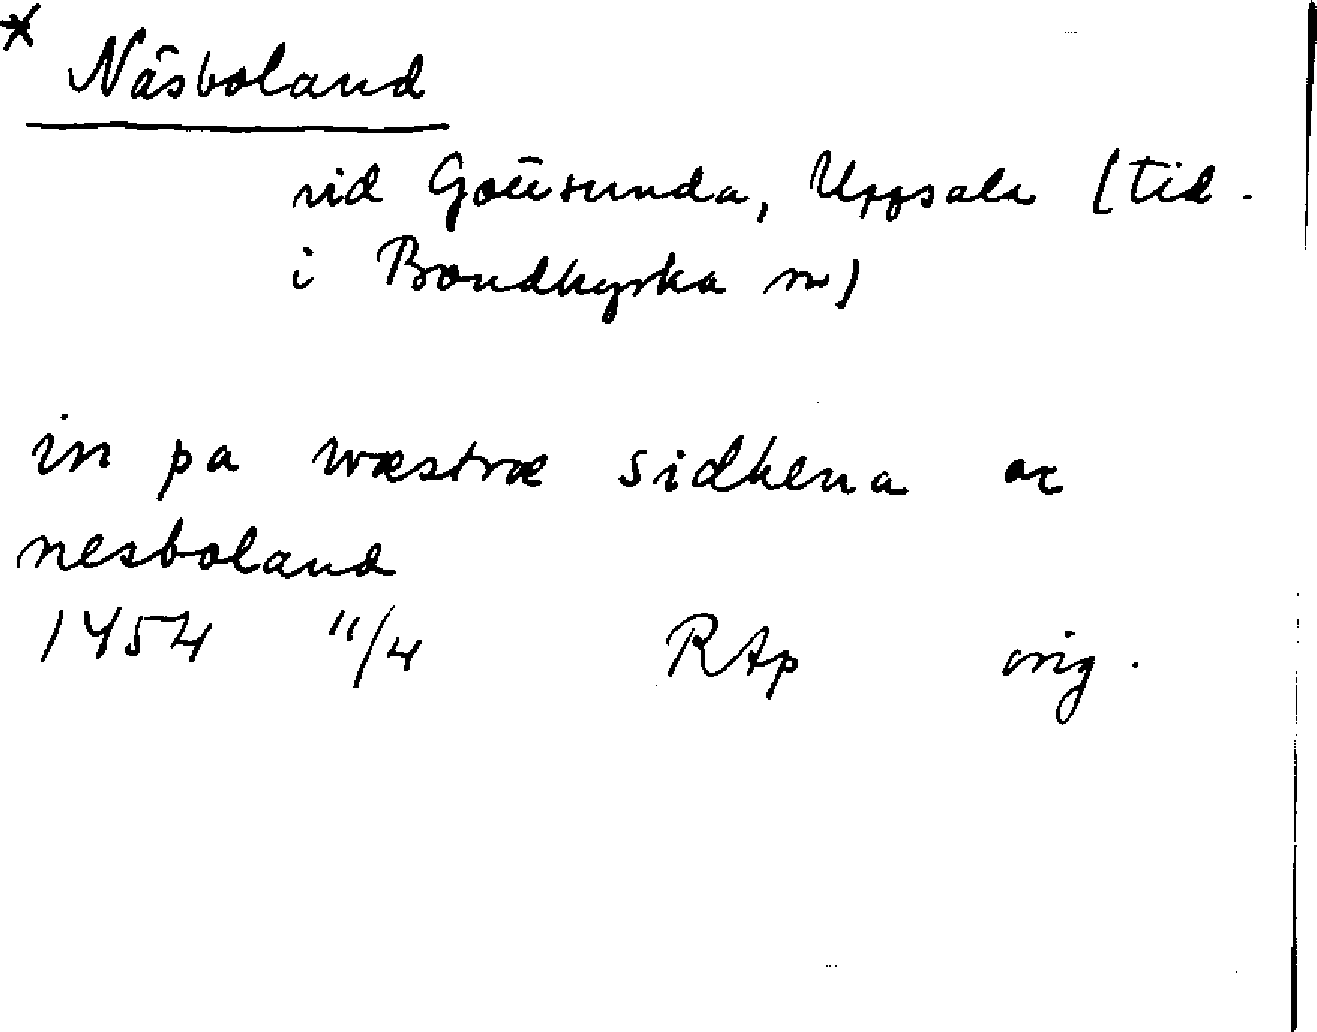 * Näsboland
vid Gottsunda, Uppsala (tid.
i Bondkyrka sn)
in pa wæstræ sidhena oc
nesboland
1454 11/4 RAp orig.